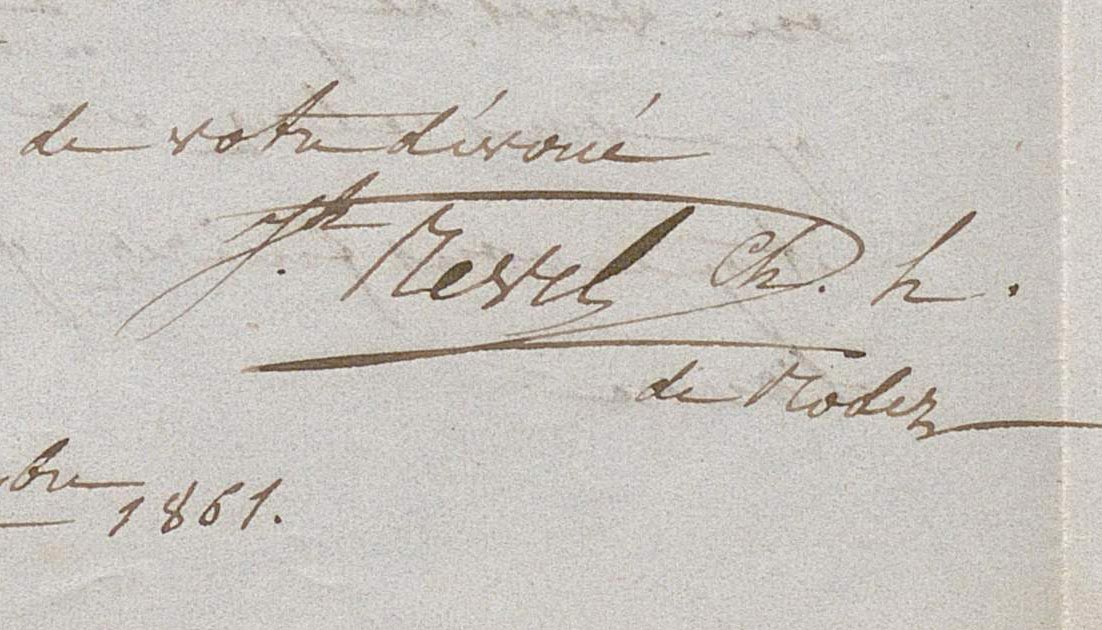 de votre dévoué
Jh. Revel Ch. h.
de Rodez
bre 1861.